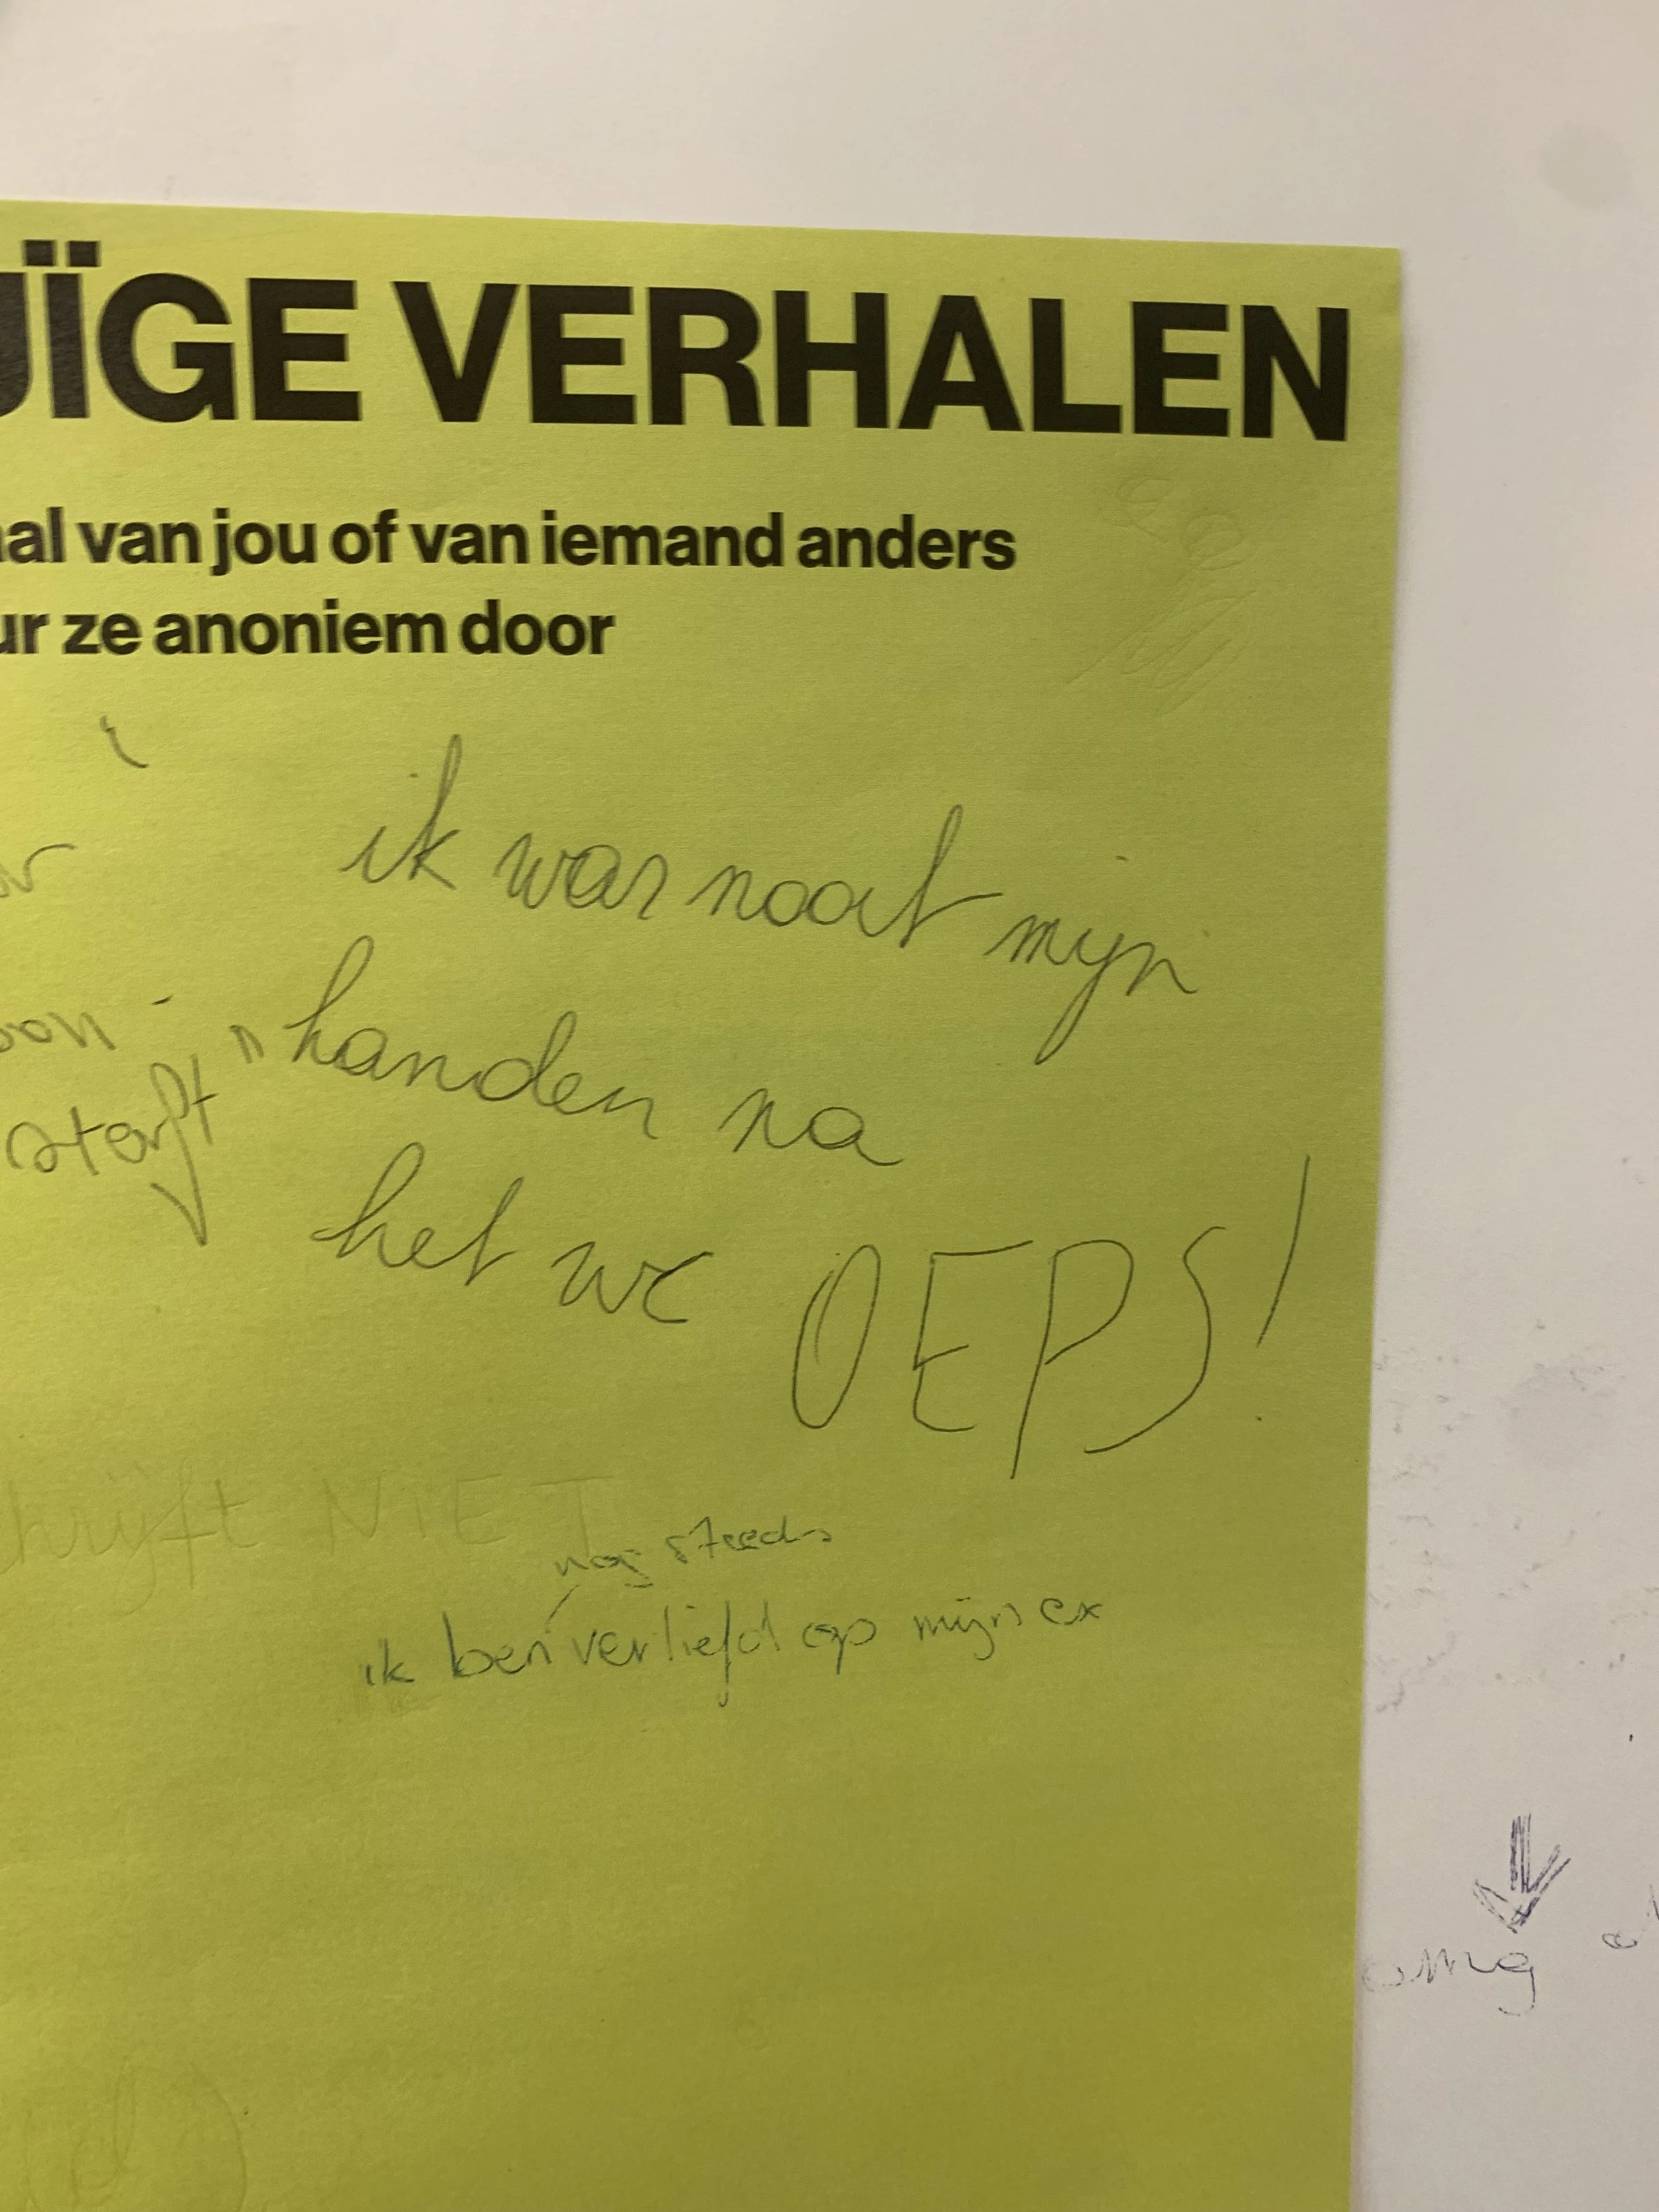 ÏGE VERHALEN
aal van jou of van iemand anders
ur ze anoniem door
ik was nooit mijn
handen na
het wc OEPS!
NIET
nog steeds
ik ben verliefd op mijn ex
omg